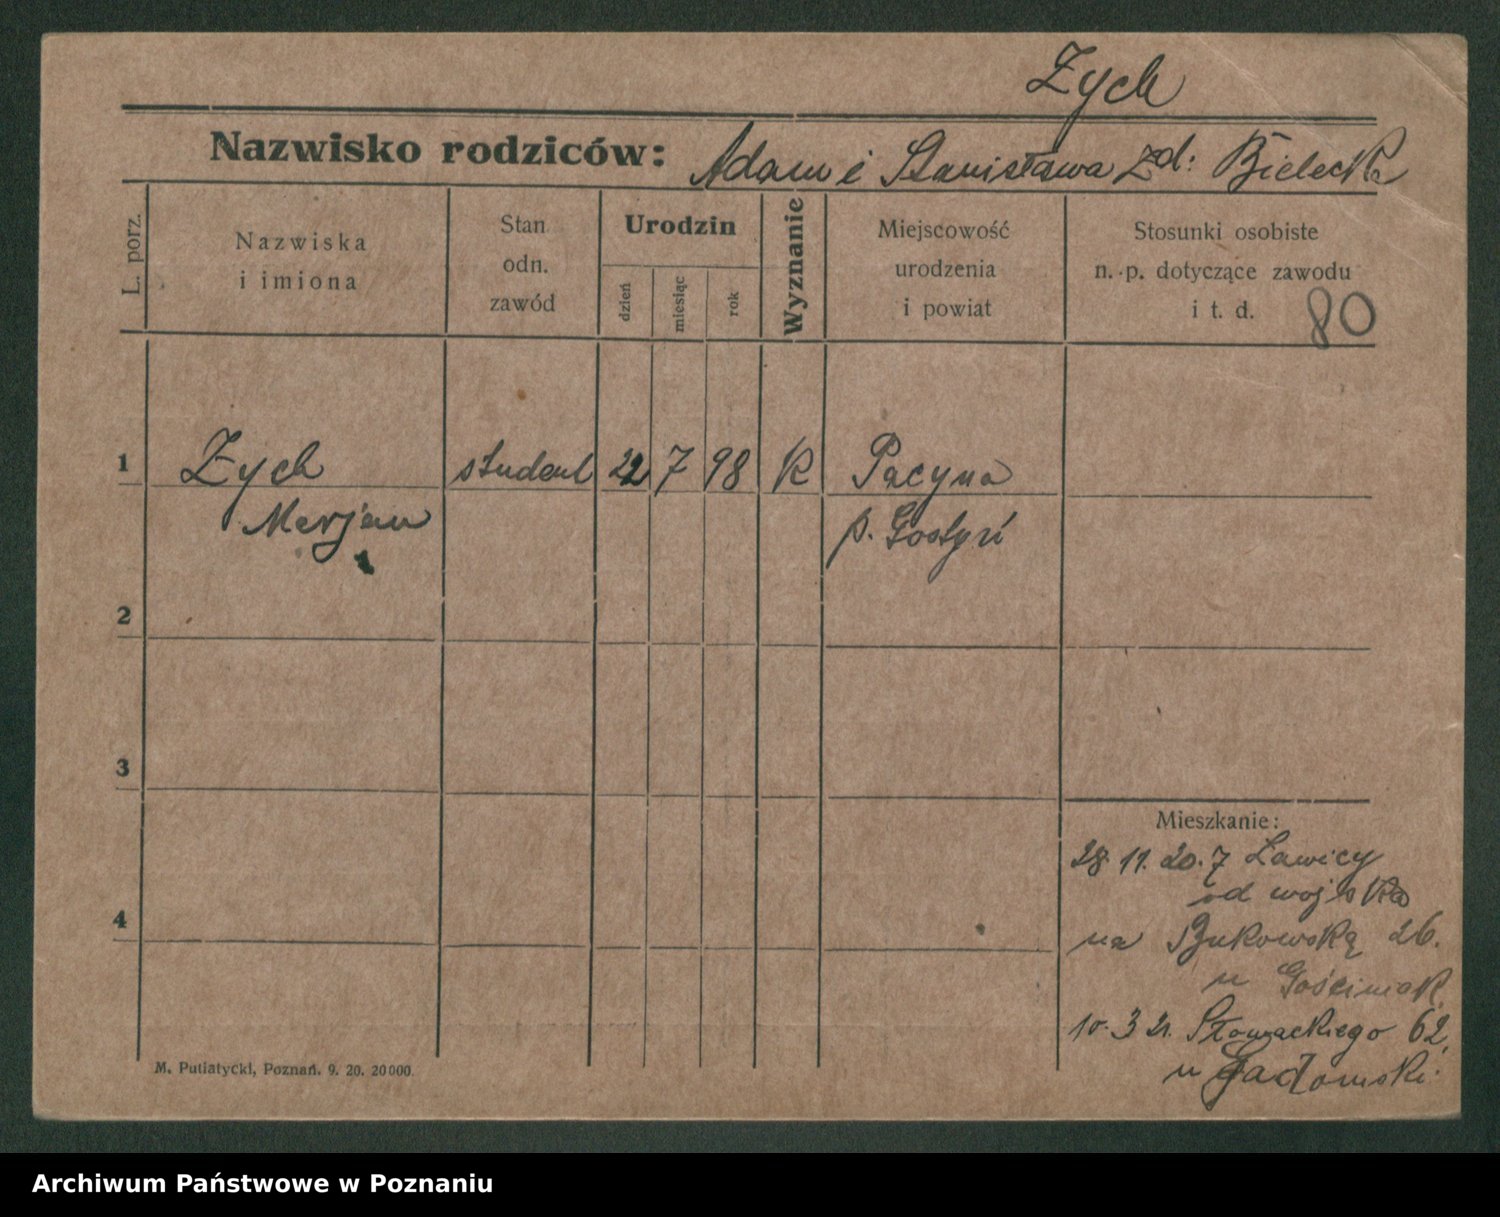 Zych
Nazwisko rodziców: Adam i Stanisława zd: Bielecka
L. porz.
Nazwiska
i imiona
Stan
odn.
zawód
Urodzin
dzień
miesiąc
rok
Wyznanie
Miejscowość
urodzenia
i powiat
Stosunki osobiste
n. p. dotyczące zawodu
i t. d.
80
1 Zych student 22 7 98 K Pacyna
Marjan p. Gostyń
2
3
Mieszkanie:
28. 11. 20. z Ławicy
od wojska
4
na Bukowską 26.
u Gościniak
10. 3 21. Słowackiego 62,
u Gadomski.
M. Putiatycki, Poznań. 9. 20. 20000.
Archiwum Państwowe w Poznaniu